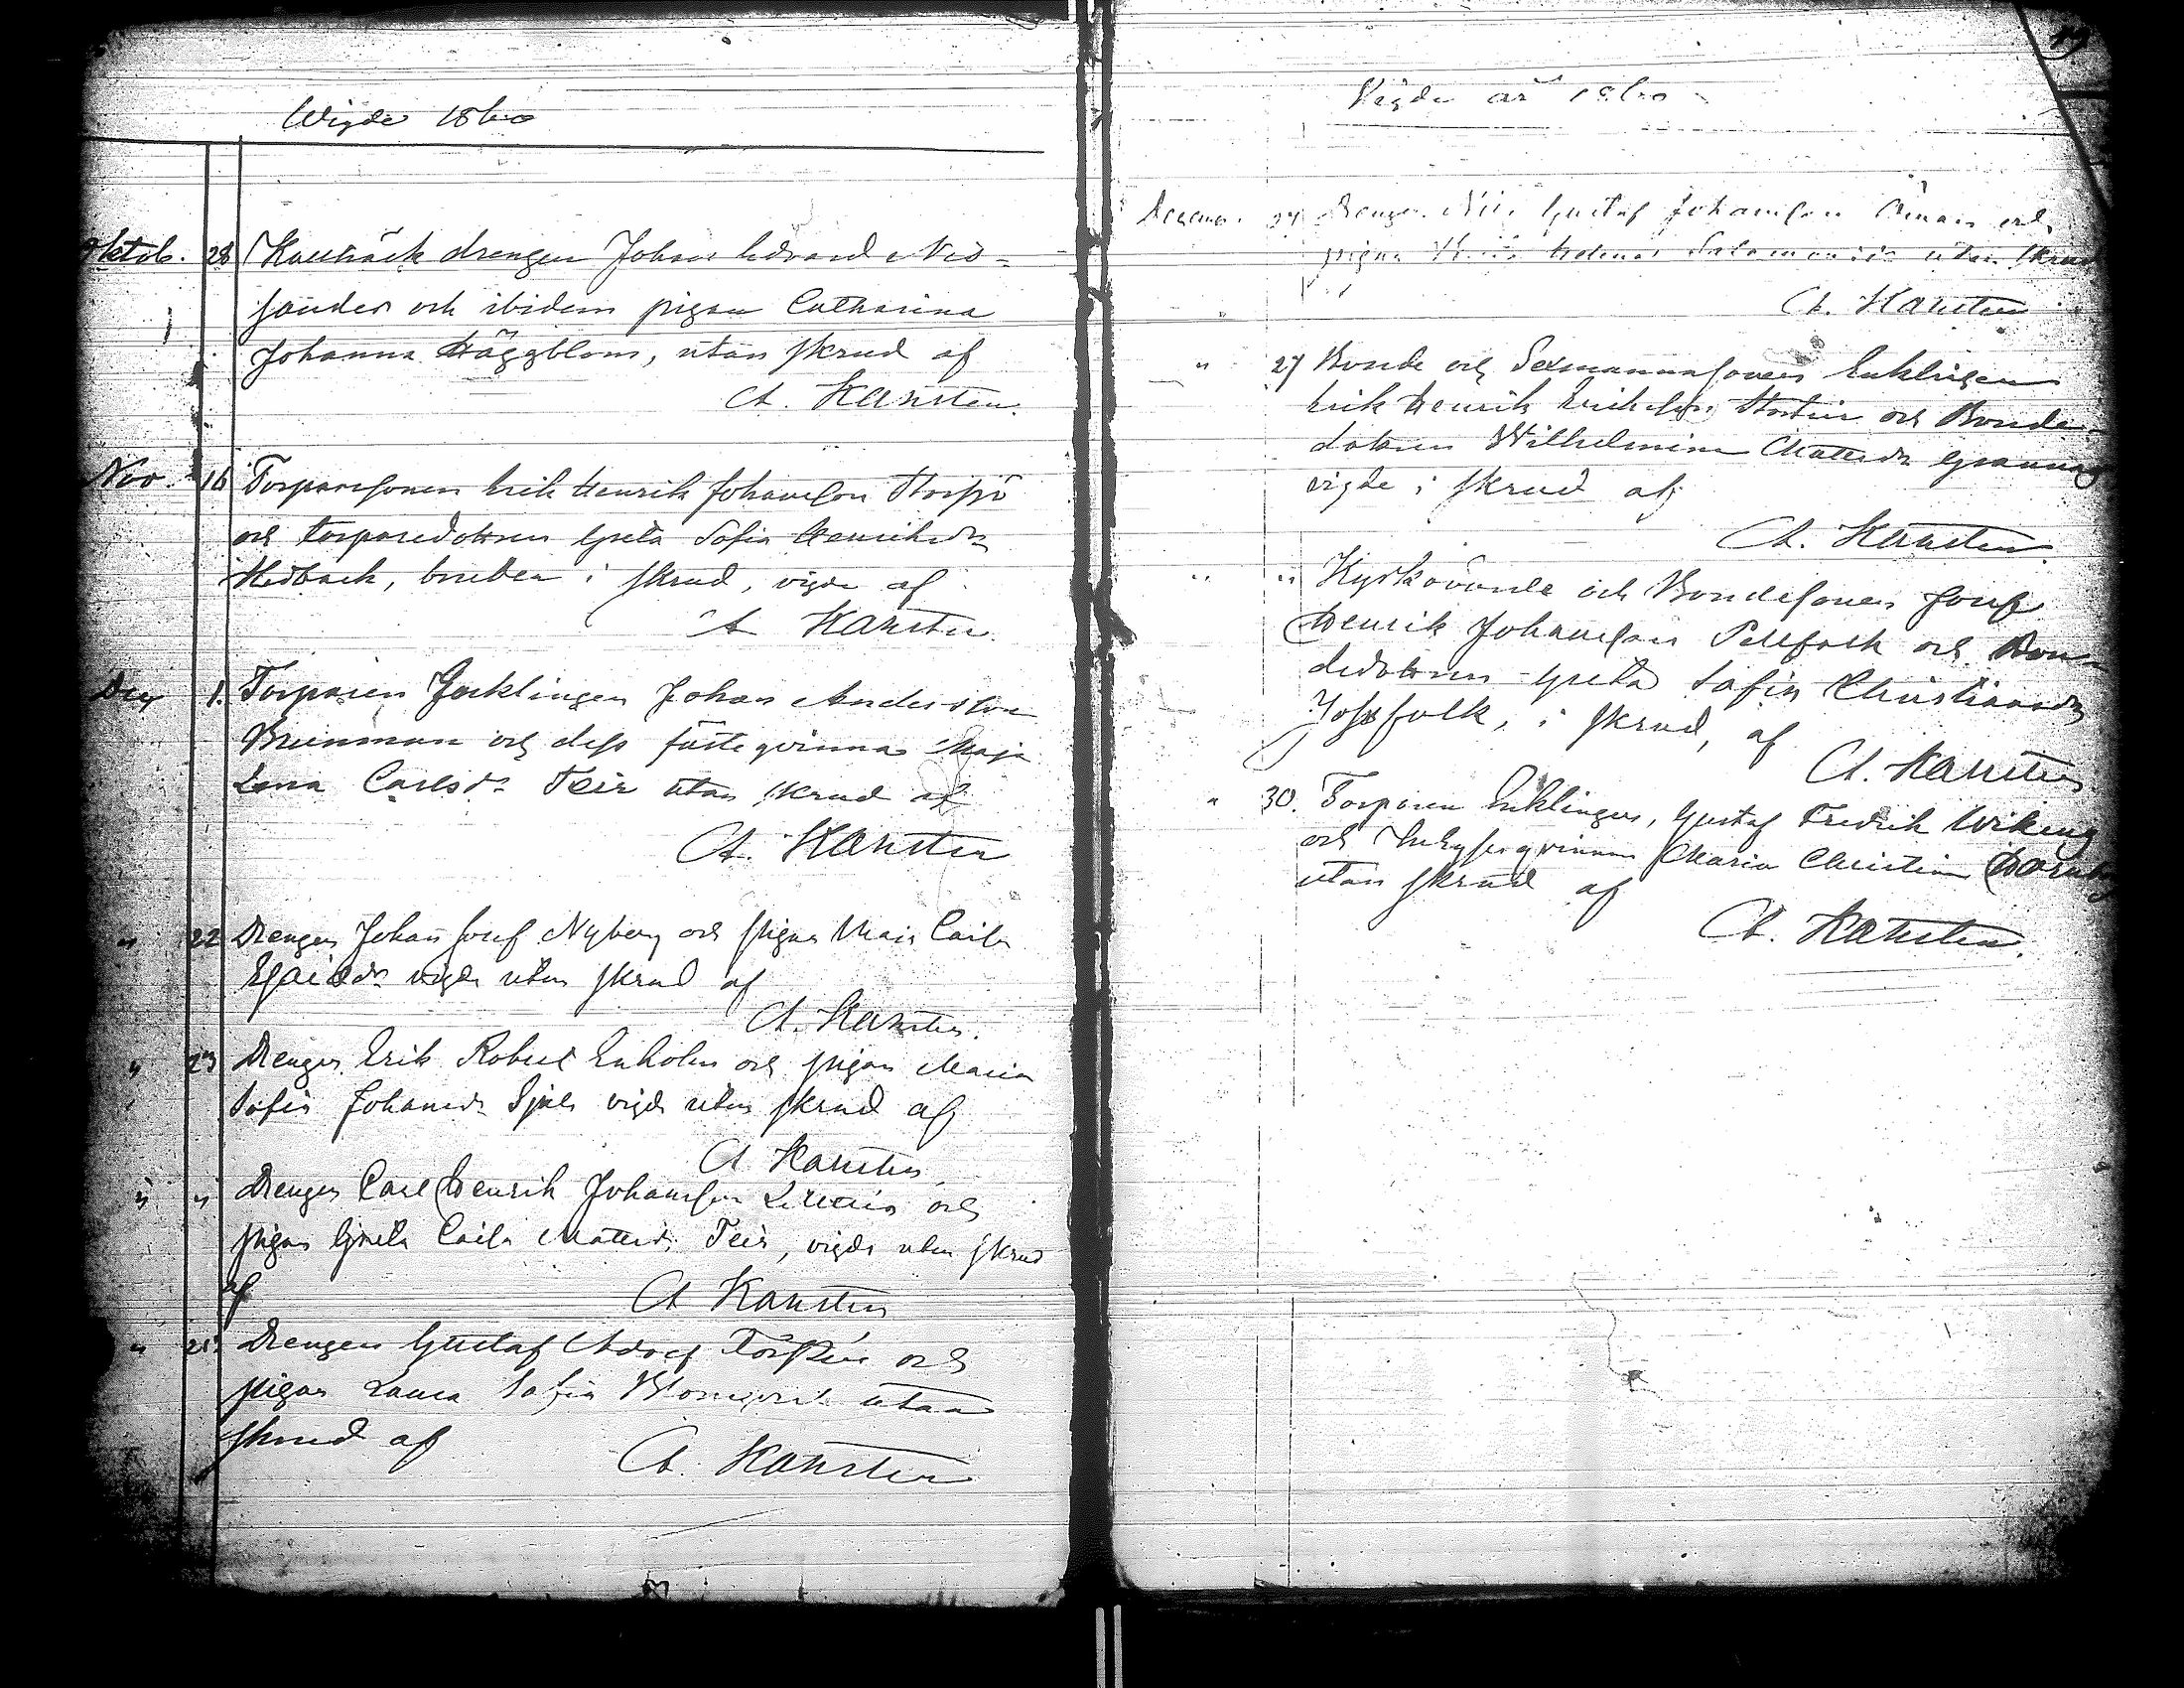 Wigde 1860
Oktob. 28 Kallträsk drengen Johan Edvard Nid=
sander och ibidem pigan Catharina
Johanna Häggblom, utan skrud af
A. Karsten.
Nov. 16 Torparesonen Erik Henrik Johansson Storsjö
och torparedottren Greta Sofia Henriksdr
Hedback, bruden i skrud, vigde af
A Karsten.
Dec 1. Torparen Enklingen Johan Andersson
Brinnman och dess fästeqvinna Maja
Lena Carlsdr Teir utan skrud af
A. Karsten
" 22 Drengen Johan Josef Nyberg och pigan Maja Caisa
Esaiædr vigde utan skrud af
A. Karsten.
" 23 Drengen Erik Robert Enholm och pigan Maria
Sofia Johansdr vigde utan skrud af
A Karsten
" " Drengen Carl Henrik Johansson och
pigan Greta Caisa Mattsdr Teir, vigde utan skrud
af
A Karsten
" Drengen Gustaf Adolf och
pigan Sofia Blomqvist utan
skrud af
A. Karsten
19
Vigde år 1860
Decemb. Drengen Gustaf Johansson Öman och
pigan Helena Salomonsdr utan skrud
A. Karsten
" 27 Bonde och Sexmannasonen Enklingen
Erik Henrik Eriksson och Bonde
dottren Wilhelmina Mattsdr
vigde i skrud af
A. Karsten
" " Kyrkovärde och Bondesonen Josef
Henrik Johansson Pellfolk och Bon
dedottren Greta Sofia Christiansdr
Jossfolk, i skrud, af
A. Karsten
" 30. Torparen Enklingen, Gustaf Fredrik Wiking
och Inhysesqvinnan Maria Christina
utan skrud af
A. Karsten.